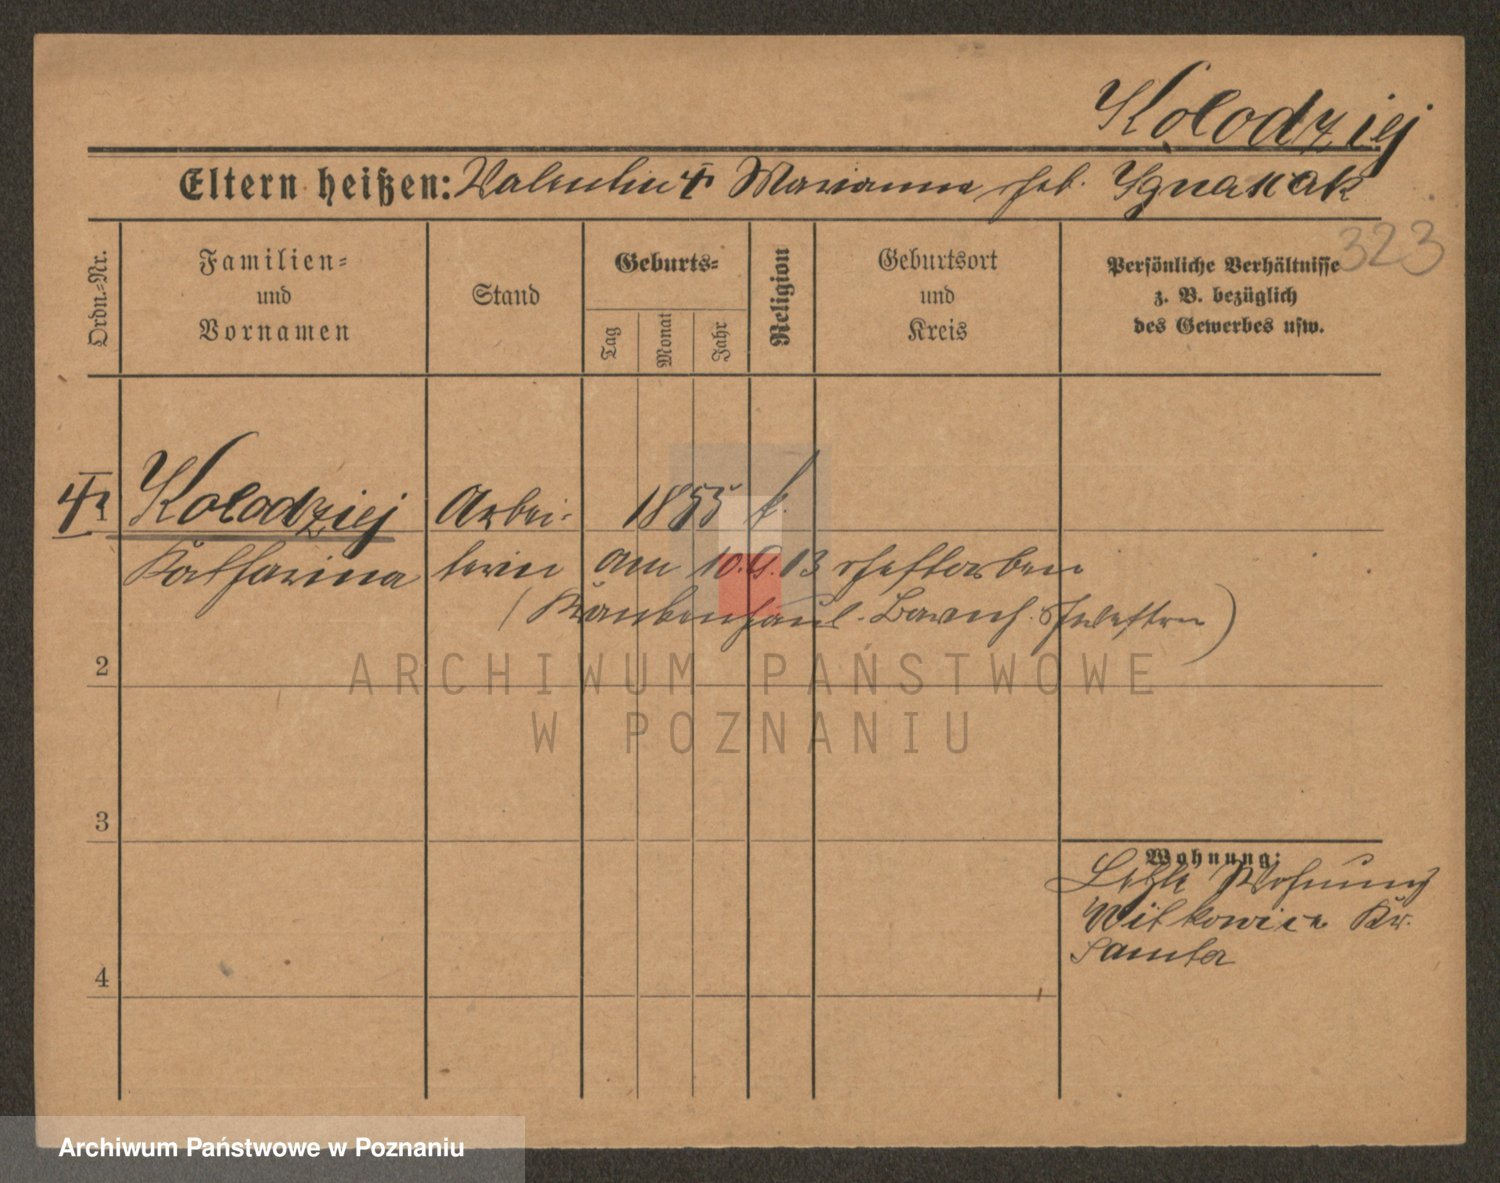 Kolodziej
Eltern heißen: Valentin u Marianna geb. Ignasiak
323
Ordn.-Nr.
Familien-
und
Vornamen
Stand
Geburts-
Tag
Monat
Jahr
Religion
Geburtsort
und
Kreis
Persönliche Verhältnisse
z. B. bezüglich
des Gewerbes usw.
1 Kolodziej Arbei- 1855 k.
Katharina terin am 10.9.13 gestorben
(Krankenhaus Barmh. Schwestern)
2
ARCHIWUM PAŃSTWOWE
W POZNANIU
3
Wohnung:
Letzte Wohnung
Witkowice Kr.
Samter
4
Archiwum Państwowe w Poznaniu